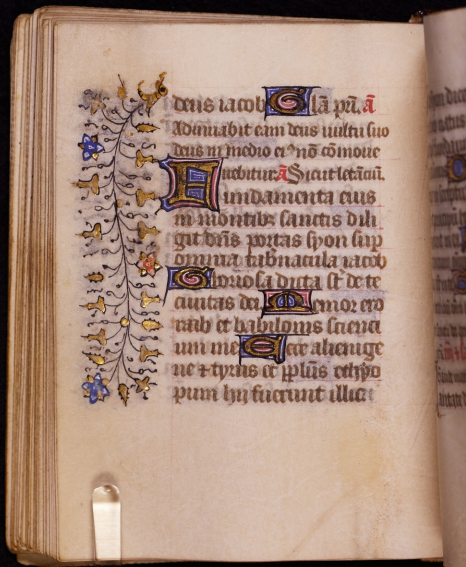 deus iacob Gl̃a pr̃i. ã
Adiuuabit eam deus uultu suo
deus in medio eiꝰ nõ cõmoue
uebitur. ã Sicut letãciũ.
Fundamenta eius
in mõntibꝫ sanctis dili
git dñs portas syon sup
omnia tabnacula iacob
Gloriosa dicta st̃ de te
ciuitas dei Memor ero
raab et babilonis scienci
um me Ecce alienige
ne ⁊ tyrus et pplũs ethyo
pum hij fuerunt illic